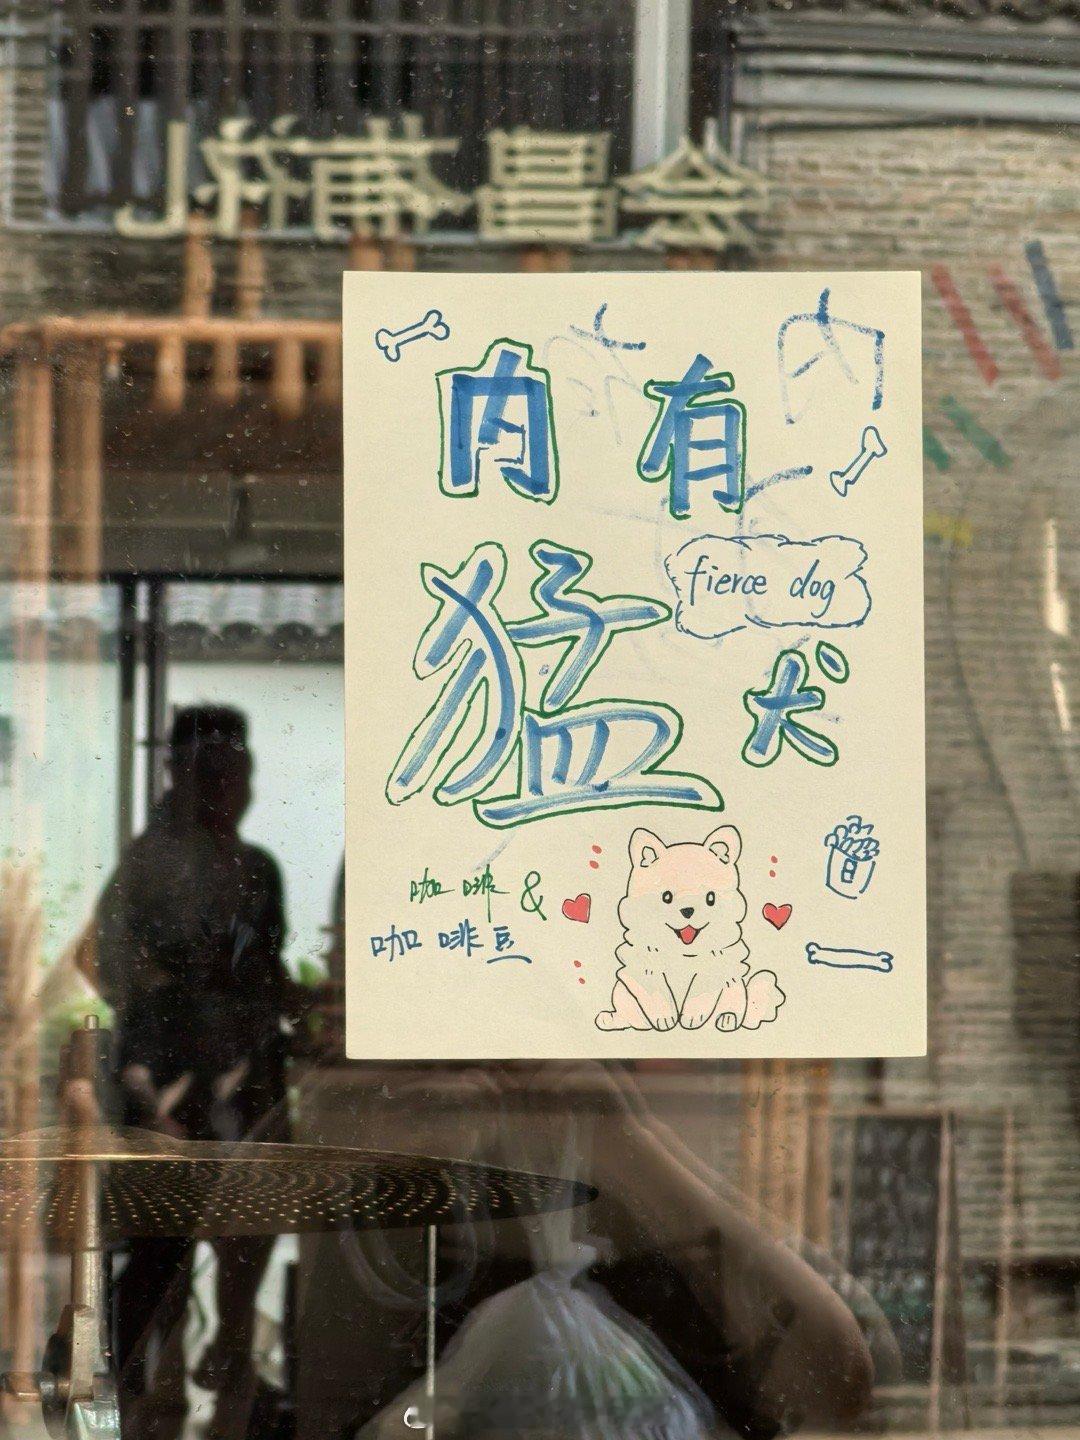 会昌
内有
猛
fierce dog
犬
咖啡 &
咖啡豆